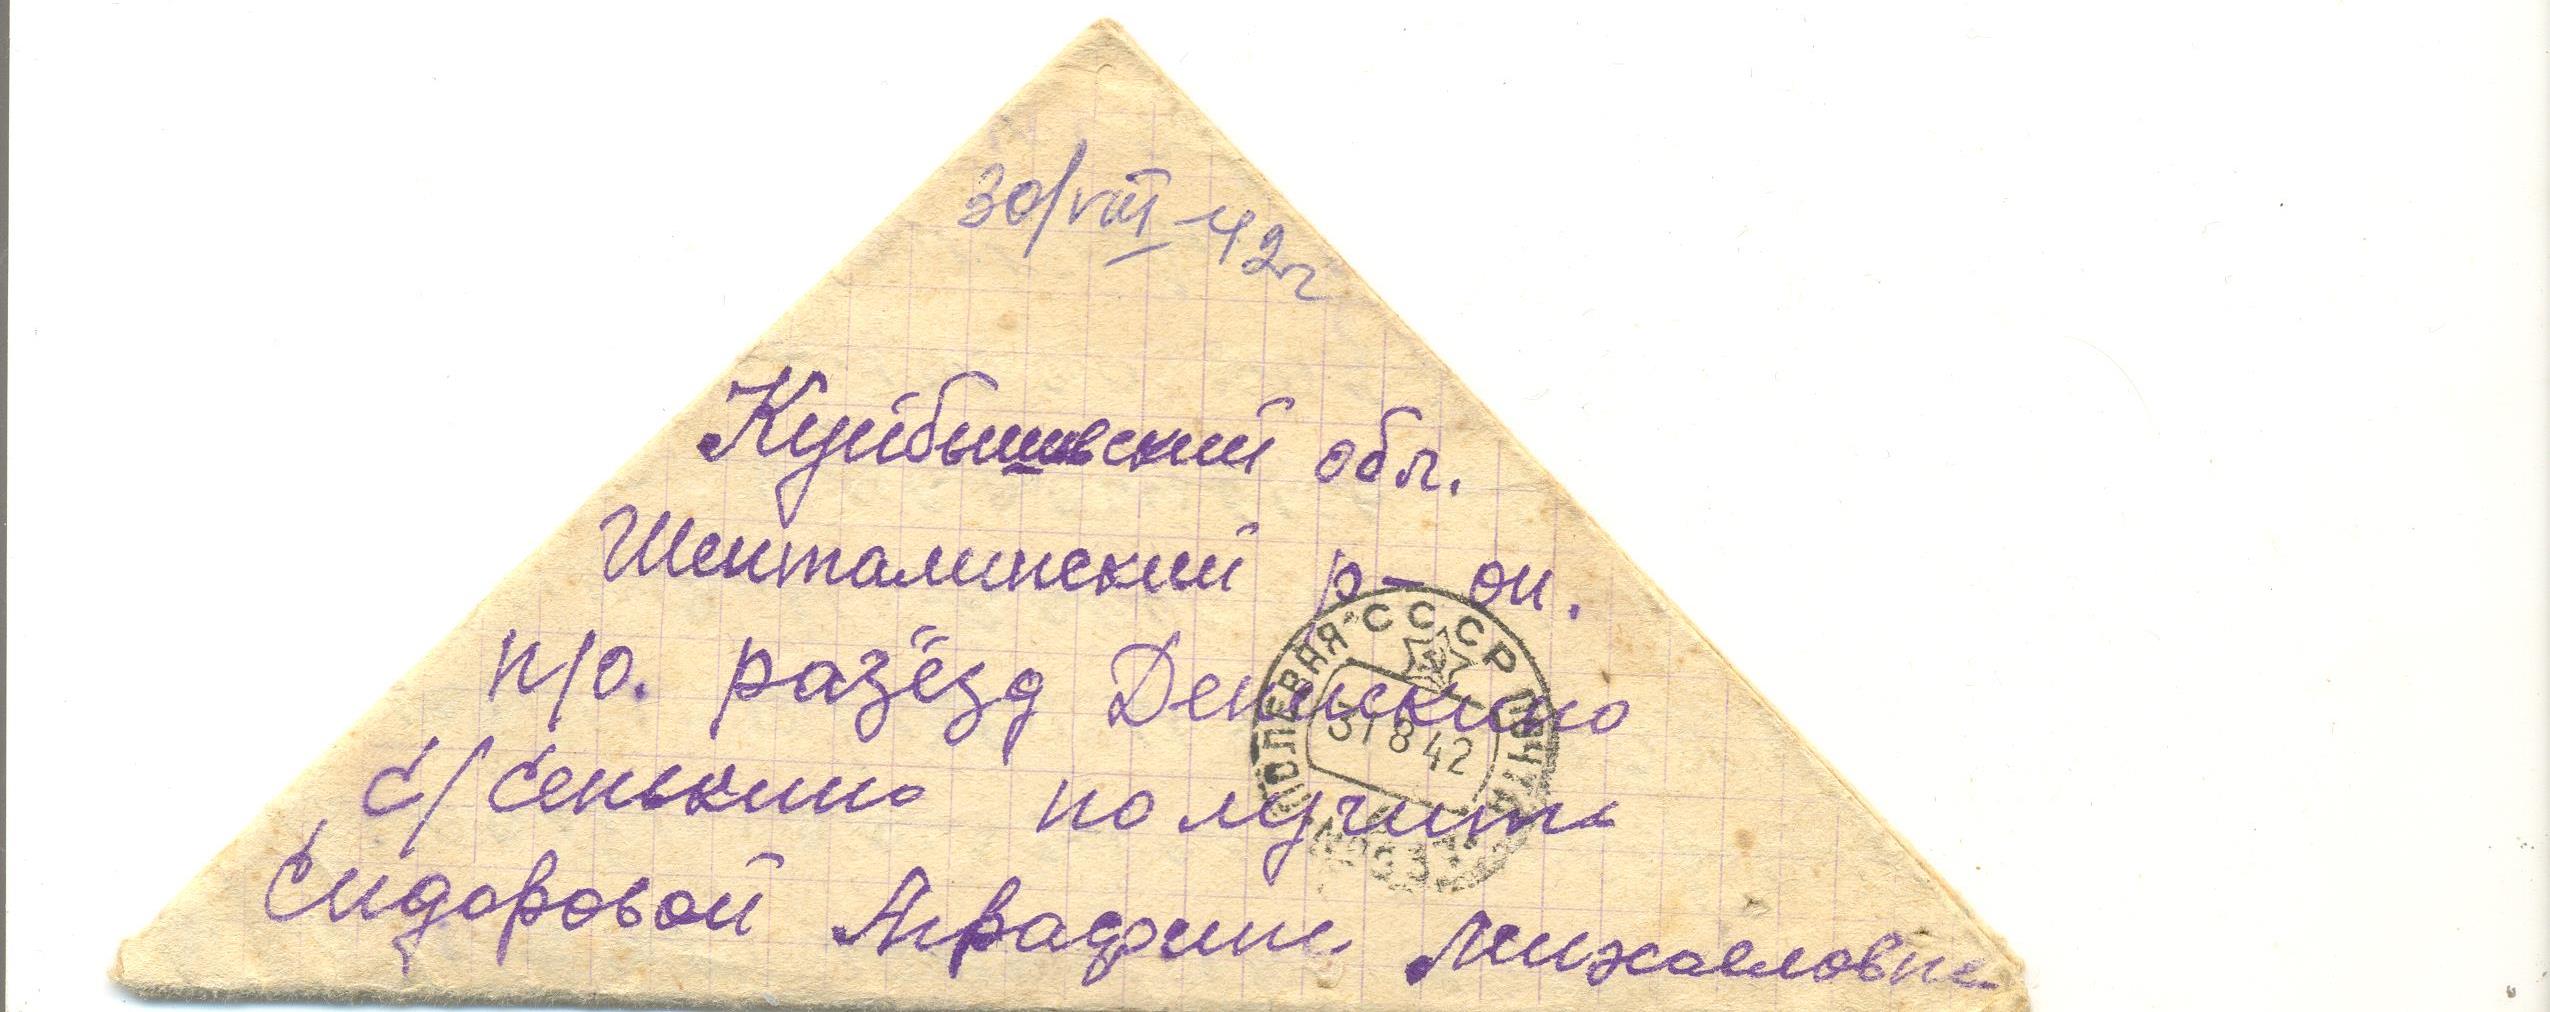 30/VIII-42г
Куйбышевский обл.
Шенталинский р-он.
п/о. разъёзд Денискино
с/Сенькино получить
Сидоровой Аграфине Михайловне
ПОЛЕВАЯ СССР ПОЧТА
31 8 42